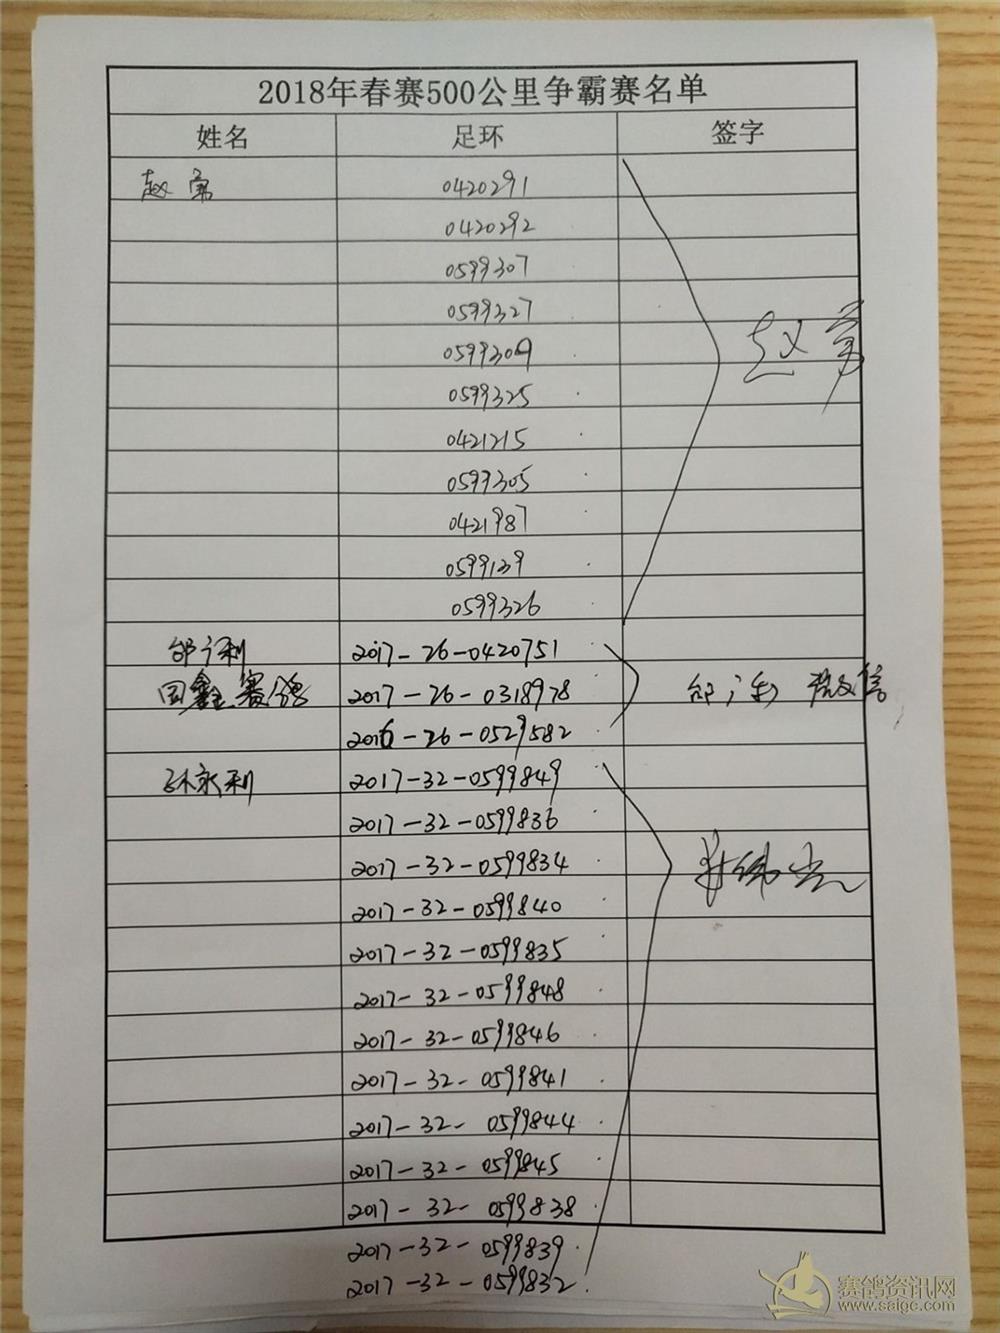 2018年春赛500公里争霸赛名单
姓名 足环 签字
赵常 0420291
0420292
0599307
0599327
0599309
赵常
0599325
0421215
0599305
0421987
0599139
0599326
邰广利 2017-26-0420751
国鑫赛鸽 2017-26-0318978 邰广利 微信
2016-26-0529582
孙永利 2017-32-0599849
2017-32-0599836
2017-32-0599834
2017-32-0599840
2017-32-0599835
2017-32-0599848
2017-32-0599846
2017-32-0599841
2017-32-0599844
2017-32-0599845
2017-32-0599838
2017-32-0599839
2017-32-0599832
赛鸽资讯网
www.saigc.com